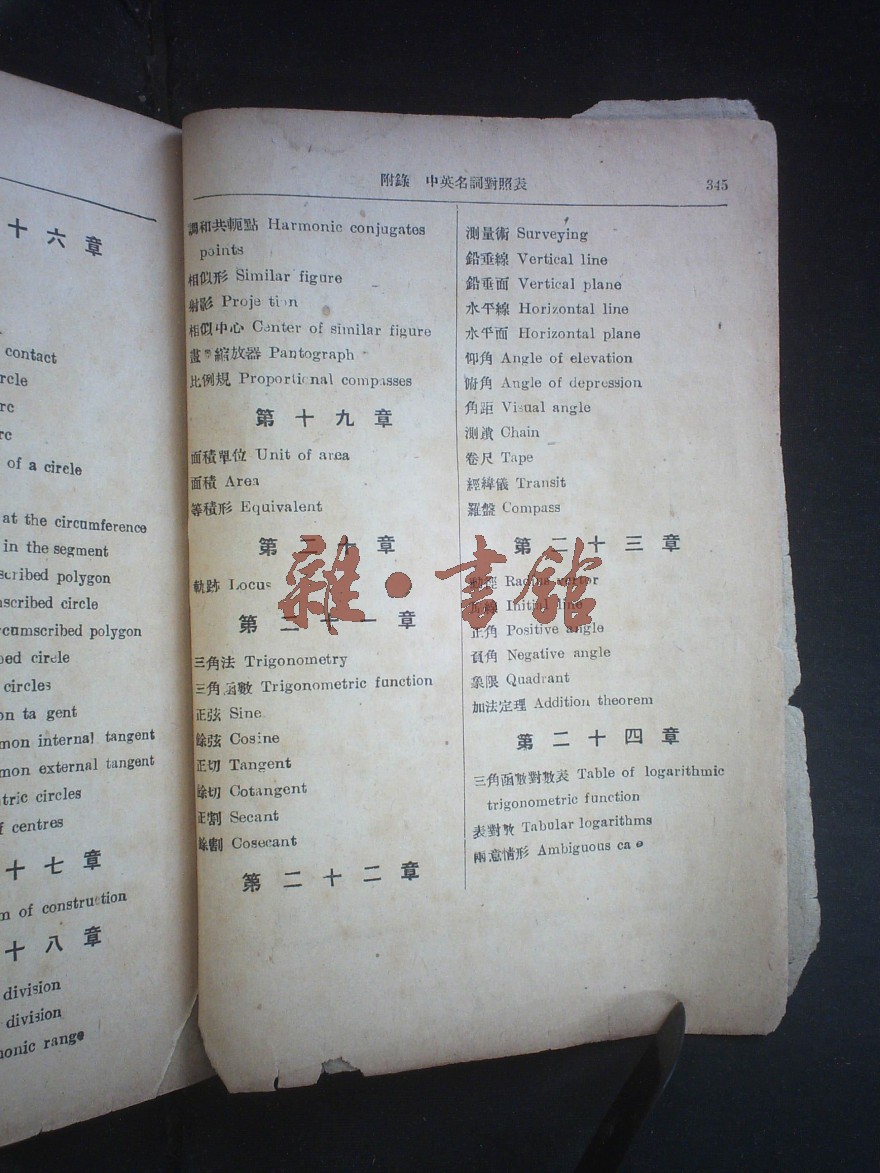 十六章
contact
rcle
rc
rc
of a circle
at the circumference
in the segment
scribed polygon
nscribed circle
rcumscribed polygon
bed circle
circles
on ta gent
mon internal tangent
mon external tangent
tric circles
f centres
十七章
m of construction
十八章
division
division
monic range
附錄 中英名詞對照表 345
調和共軛點 Harmonic conjugates
points
相似形 Similar figure
射影 Proje ti n
相似中心 Center of similar figure
縮放器 Pantograph
比例規 Proportional compasses
第十九章
面積單位 Unit of area
面積 Area
等積形 Equivalent
第二十章
軌跡 Locus
第二十一章
三角法 Trigonometry
三角函數 Trigonometric function
正弦 Sine
餘弦 Cosine
正切 Tangent
餘切 Cotangent
正割 Secant
餘割 Cosecant
第二十二章
測量術 Surveying
鉛垂線 Vertical line
鉛垂面 Vertical plane
水平線 Horizontal line
水平面 Horizontal plane
仰角 Angle of elevation
俯角 Angle of depression
角距 Visual angle
測鏈 Chain
卷尺 Tape
經緯儀 Transit
羅盤 Compass
第二十三章
動徑 Radius vector
Initial line
正角 Positive angle
負角 Negative angle
象限 Quadrant
加法定理 Addition theorem
第二十四章
三角函數對數表 Table of logarithmic
trigonometric function
表對數 Tabular logarithms
兩意情形 Ambiguous ca e
雜·書館